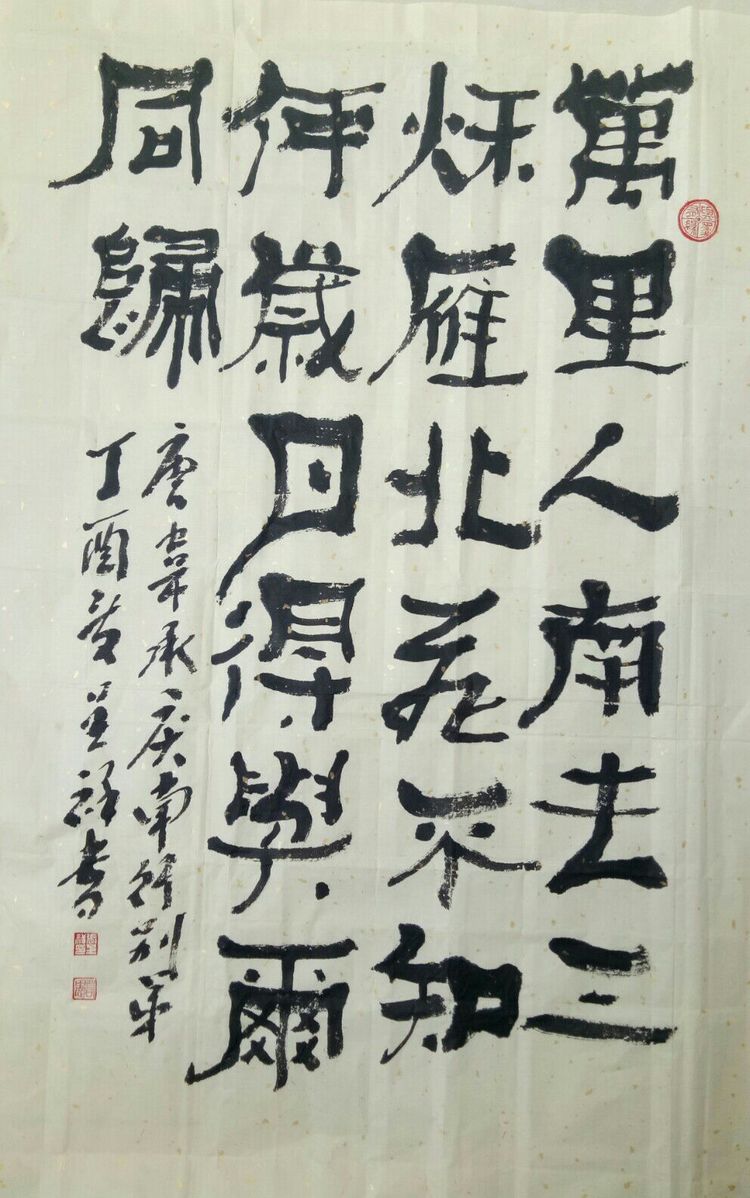 萬里人南去三
秌雁北飛不知
何歲月得與爾
同歸
唐韋承庆南行别弟
丁酉 祥書